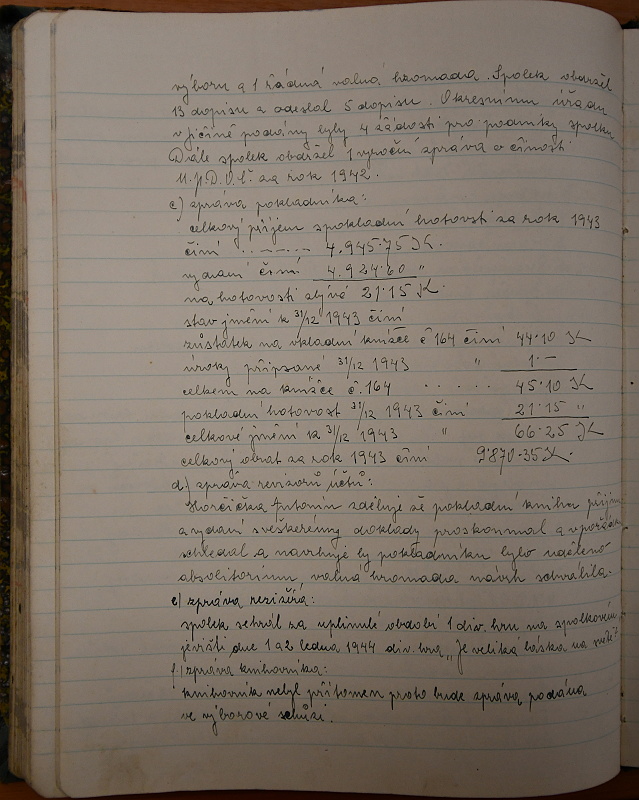 výboru a 1 řádná valná hromada. Spolek obdržel
13 dopisů a odeslal 5 dopisů. Okresnímu úřadu
v Jičíně podány byly 4 žádosti pro podniky spolku.
Dále spolek obdržel 1 výroční zpráva o činosti
M.p.D.O.Č. za rok 1942.
c) zpráva pokladníka:
celkový příjem s pokladní hotovostí za rok 1943
činí ........ 4.945·75 K.
vydání činí 4.924·60 "
na hotovosti zbývá 21·15 K.
stav jmění k 31/12 1943 činí
zůstatek na vkladní knížce č 164 činí 44·10 K
úroky připsané 31/12 1943 " 1·—
celkem na knížce č. 164 . . . . . 45·10 K
pokladní hotovost 31/12 1943 činí 21·15 "
celkové jmění k 31/12 1943 " 66·25 K
celkový obrat za rok 1943 činí 9.870·35 K.
d.) zpráva revisorů účtů:
Horčička Antonín zděluje že pokladní kniha příjmu
a vydaní s veškerémy doklady proskoumal a v pořádku
schledal a navrhuje by pokladníku bylo uděleno
absolitorium, valná hromada návrh schválila.
e) zpráva režiséra:
spolek sehrál za uplinulé období 1 div. hru na spolkovém
jevišti dne 1 a 2 ledna 1944 div. hra "Je veliká láska na světě?"
f) zpráva knihovníka:
knihovník nebyl přítomen proto bude zpráva podána
ve výborové schůzi.